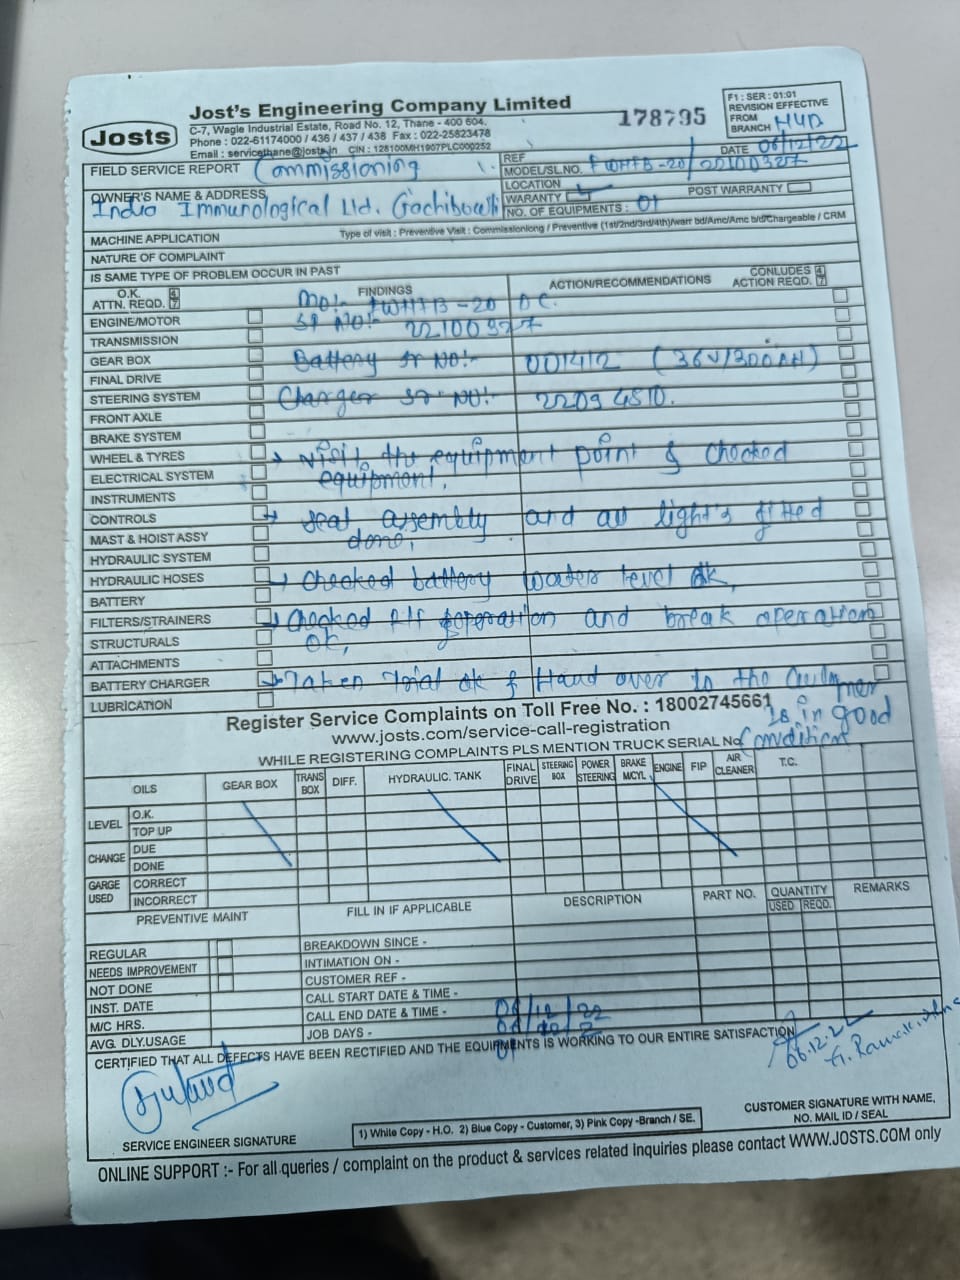 Josts
Jost's Engineering Company Limited
C-7, Wagle Industrial Estate, Road No. 12, Thane - 400 604.
Phone : 022-61174000 / 436 / 437 / 438 Fax : 022-25823478
Email : servicethane@josts.in CIN : 128100MH1907PLC000252
178795
F1 : SER : 01:01
REVISION EFFECTIVE
FROM
BRANCH HYD
DATE 06/12/22
FIELD SERVICE REPORT Commissioning
REF
MODEL/SL.NO. FWHTB-20/22100327
LOCATION
WARANTY
POST WARRANTY
NO. OF EQUIPMENTS : 01
OWNER'S NAME & ADDRESS
India Immunological Ltd. Gachibowli
MACHINE APPLICATION
Type of visit : Preventive Visit : Commissionlong / Preventive (1st/2nd/3rd/4th)/warr bd/Amc/Amc b/d/Chargeable / CRM
NATURE OF COMPLAINT
IS SAME TYPE OF PROBLEM OCCUR IN PAST
O.K.
ATTN. REQD.
FINDINGS
ACTION/RECOMMENDATIONS
CONLUDES
ACTION REQD.
Mo:- FWHTB-20 DC.
ENGINE/MOTOR
Sr No:- 22100327
TRANSMISSION
GEAR BOX
Battery Sr No:- 001412 (36V/300AH)
FINAL DRIVE
STEERING SYSTEM
Charger Sr No:- 22094810.
FRONT AXLE
BRAKE SYSTEM
WHEEL & TYRES
→ Visit the equipment point & checked
ELECTRICAL SYSTEM
equipment.
INSTRUMENTS
CONTROLS
→ seat assembly and all light's fitted
MAST & HOIST ASSY
done,
HYDRAULIC SYSTEM
HYDRAULIC HOSES
→ checked battery water level ok,
BATTERY
FILTERS/STRAINERS
→ checked operation and break operation
STRUCTURALS
ok,
ATTACHMENTS
BATTERY CHARGER
→ Taken trial ok & Hand over to the
LUBRICATION
is in good
Condition
Register Service Complaints on Toll Free No. : 18002745661
www.josts.com/service-call-registration
WHILE REGISTERING COMPLAINTS PLS MENTION TRUCK SERIAL No
OILS
GEAR BOX
TRANS BOX
DIFF.
HYDRAULIC. TANK
FINAL DRIVE
STEERING BOX
POWER STEERING
BRAKE M/CYL
ENGINE
FIP
AIR CLEANER
T.C.
LEVEL
O.K.
TOP UP
CHANGE
DUE
DONE
GARGE USED
CORRECT
INCORRECT
PREVENTIVE MAINT
FILL IN IF APPLICABLE
DESCRIPTION
PART NO.
QUANTITY
USED
REQD.
REMARKS
REGULAR
BREAKDOWN SINCE -
NEEDS IMPROVEMENT
INTIMATION ON -
NOT DONE
CUSTOMER REF -
INST. DATE
CALL START DATE & TIME -
06/12/22
M/C HRS.
CALL END DATE & TIME -
AVG. DLY.USAGE
JOB DAYS -
01
CERTIFIED THAT ALL DEFECTS HAVE BEEN RECTIFIED AND THE EQUIPMENTS IS WORKING TO OUR ENTIRE SATISFACTION
06.12.22
SERVICE ENGINEER SIGNATURE
1) White Copy - H.O. 2) Blue Copy - Customer, 3) Pink Copy -Branch / SE.
CUSTOMER SIGNATURE WITH NAME,
NO. MAIL ID / SEAL
ONLINE SUPPORT :- For all queries / complaint on the product & services related Inquiries please contact WWW.JOSTS.COM only